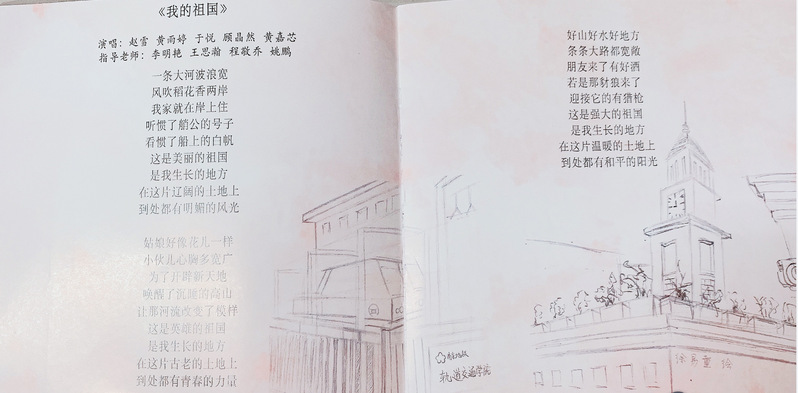 《我的祖国》
演唱：赵雪 黄雨婷 于悦 顾晶然 黄嘉芯
指导老师：李明艳 王思瀚 程敬乔 姚鹏
一条大河波浪宽
风吹稻花香两岸
我家就在岸上住
听惯了艄公的号子
看惯了船上的白帆
这是美丽的祖国
是我生长的地方
在这片辽阔的土地上
到处都有明媚的风光
姑娘好像花儿一样
小伙儿心胸多宽广
为了开辟新天地
唤醒了沉睡的高山
让那河流改变了模样
这是英雄的祖国
是我生长的地方
在这片古老的土地上
到处都有青春的力量
好山好水好地方
条条大路都宽敞
朋友来了有好酒
若是那豺狼来了
迎接它的有猎枪
这是强大的祖国
是我生长的地方
在这片温暖的土地上
到处都有和平的阳光
轨道交通学院
绘